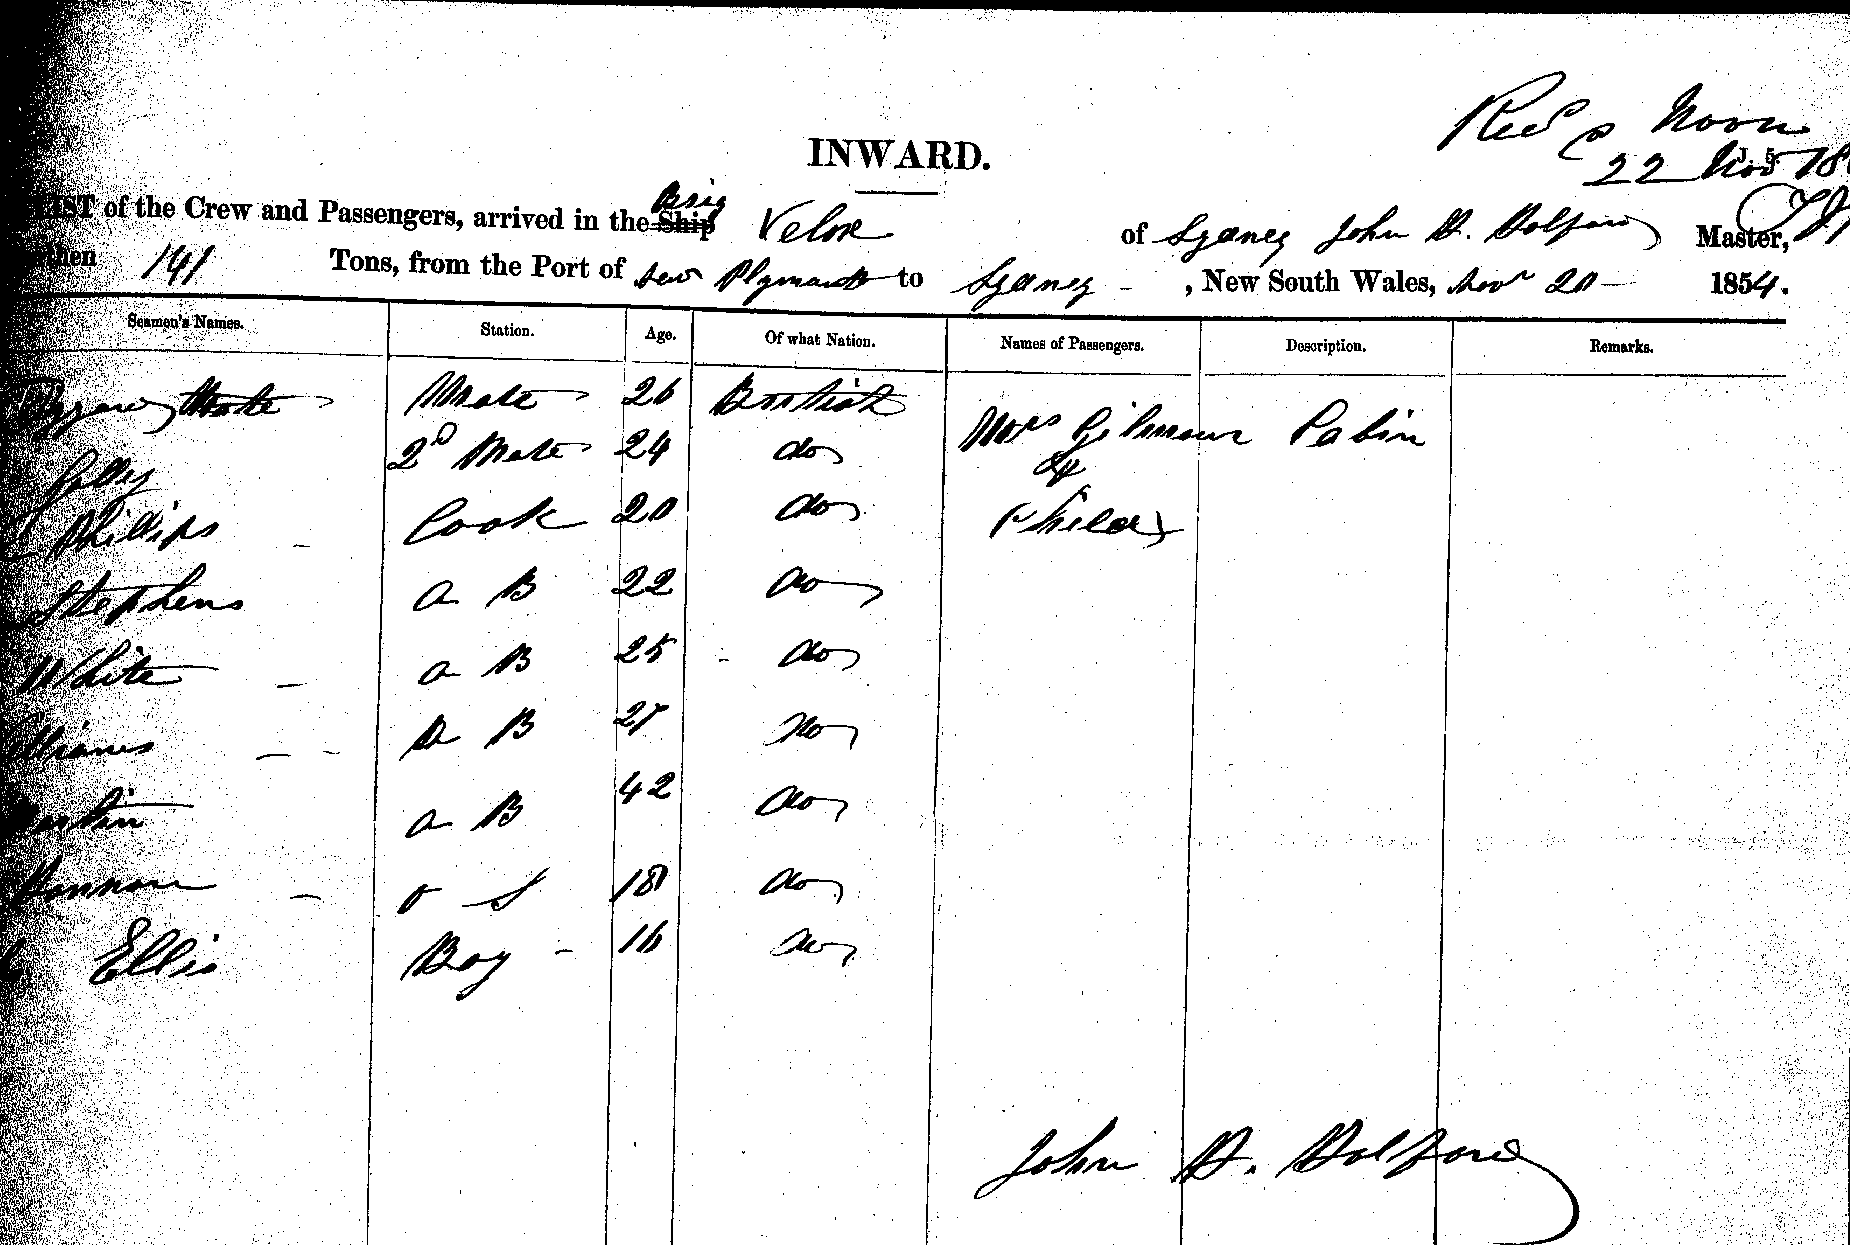 Recd Noon
INWARD.
22 Nov 18
LIST of the Crew and Passengers, arrived in the Ship Brig Velox of Sydney John D. Master,
then 141 Tons, from the Port of New Plymouth to Sydney , New South Wales, Nov 20 1854.
Seamen's Names. Station. Age. Of what Nation. Names of Passengers. Description. Remarks.
Mate 26 British Mrs Gilmour Cabin
2D Mate 24 do &
Phillips Cook 20 do Child
Stephens A B 22 do
White A B 25 do
A B 27 do
Martin A B 42 do
O S 18 do
Ellis Boy 16 do
John D.